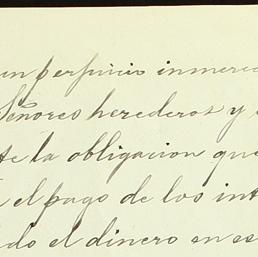 un perjuicio inmere
Señores herederos y
te la obligacion que
el pago de los int
do el dinero en es